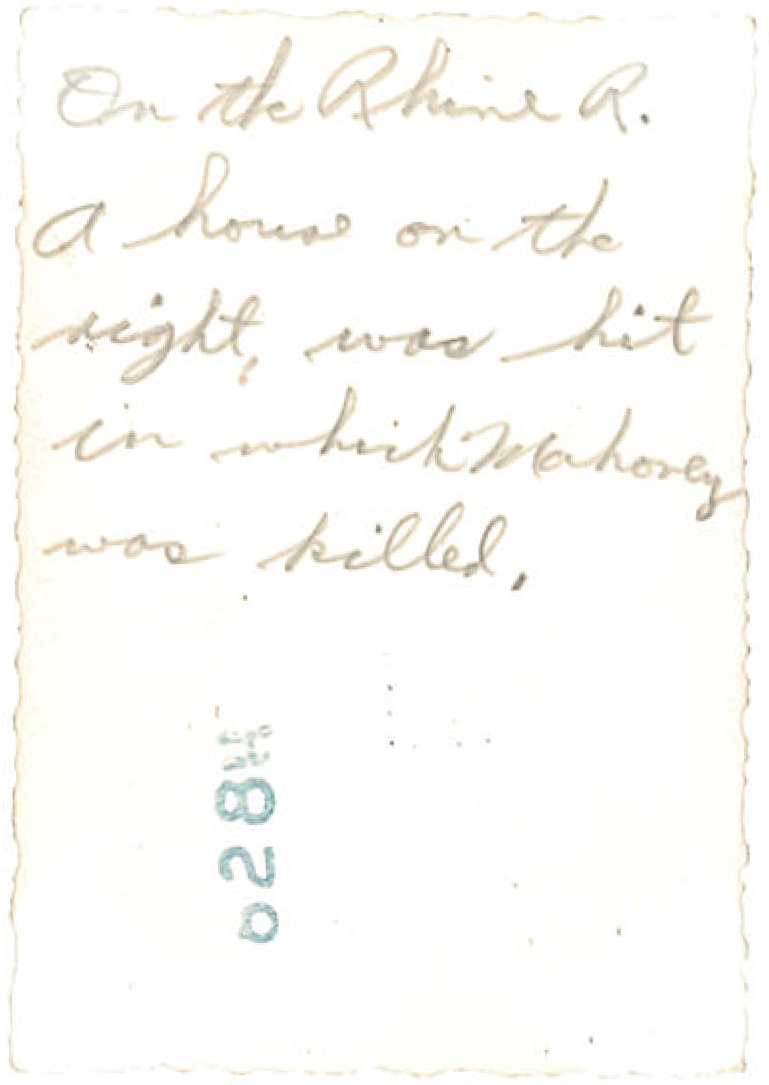 On the Rhine R.
A house on the
right, was hit
in which Mahoney
was killed.
628